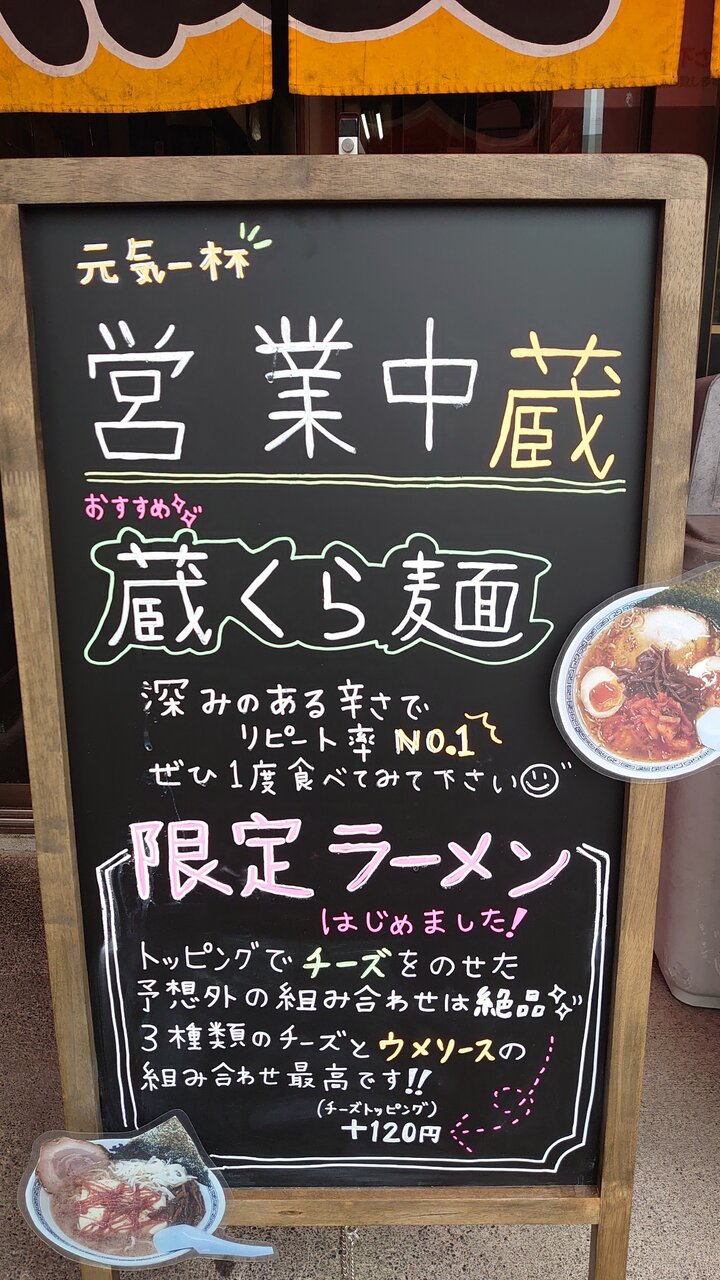 元気一杯
営業中 蔵
おすすめ
蔵くら麺
深みのある辛さで
リピート率 NO.1
ぜひ1度食べてみて下さい
限定ラーメン
はじめました!
トッピングでチーズをのせた
予想外の組み合わせは絶品
3種類のチーズとウメソースの
組み合わせ最高です!!
(チーズトッピング)
+120円